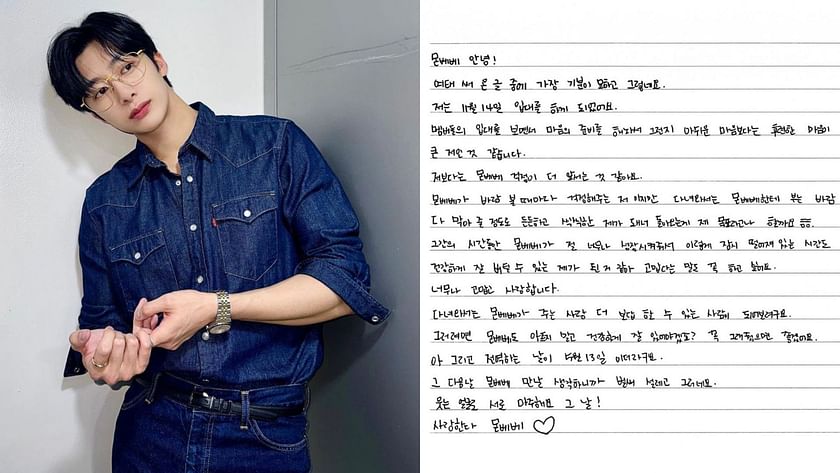 몬베베 안녕!
여태 써 온 글 중에 가장 기분이 묘하고 그렇네요.
저는 11월 14일 입대를 하게 되었어요.
멤버들의 입대를 보면서 마음의 준비를 해놔서 그런지 아쉬운 마음보다는 후련한 마음이
큰 거인 것 같습니다.
저보다는 몬베베 걱정이 더 앞서는 것 같아요.
몬베베가 바람 불 때마다 걱정해주는 저 이지만 다녀와서는 몬베베한테 부는 바람
다 막아 줄 정도로 든든하고 씩씩한 제가 돼서 돌아오는게 제 목표라고나 할까요 ㅎㅎ
그간의 시간동안 몬베베가 절 너무나 성장시켜줘서 이렇게 잠시 떨어져 있는 시간도
건강하게 잘 버틸 수 있는 제가 된 거 같아 고맙다는 말도 꼭 하고 싶어요.
너무나 고맙고 사랑합니다.
다녀와서는 몬베베가 주는 사랑 더 보답 할 수 있는 사람이 되어있을게요.
그러려면 몬베베도 아프지 말고 건강하게 잘 있어야겠죠? 꼭 그래줬으면 좋겠어요.
아 그리고 전역하는 날이 5월 13일 이더라구요.
그 다음날 몬베베 만날 생각하니까 벌써 설레고 그러네요.
웃는 얼굴로 서로 마주해요 그 날!
사랑한다 몬베베 ♡